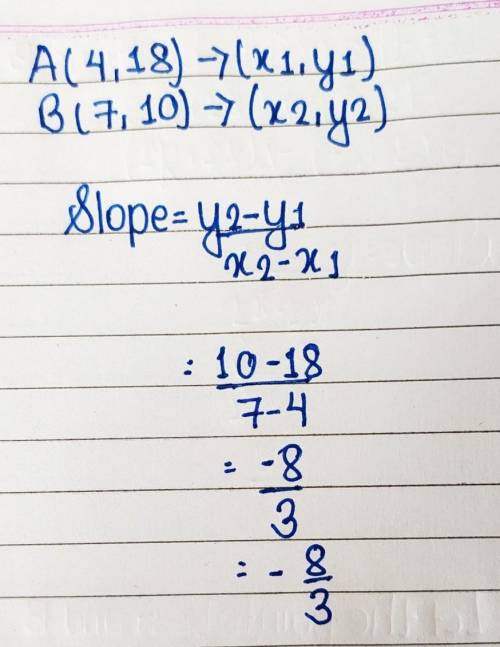 A(4,18)→(x1,y1)
B(7,10)→(x2,y2)
Slope=y2-y1
x2-x1
=10-18
7-4
=-8
3
=-8
3